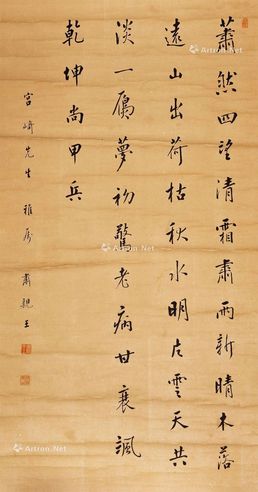 蕭然四望清霜肅雨新晴木落
遠山出荷枯秋水明片雲天共
淡一鴈夢初驚老病甘衰颯
乾坤尚甲兵
宮崎先生雅屬 肅親王
Artron.Net
Artron.Net
Artron.Net
Artron.Net
Artron.Net
Artron.Net